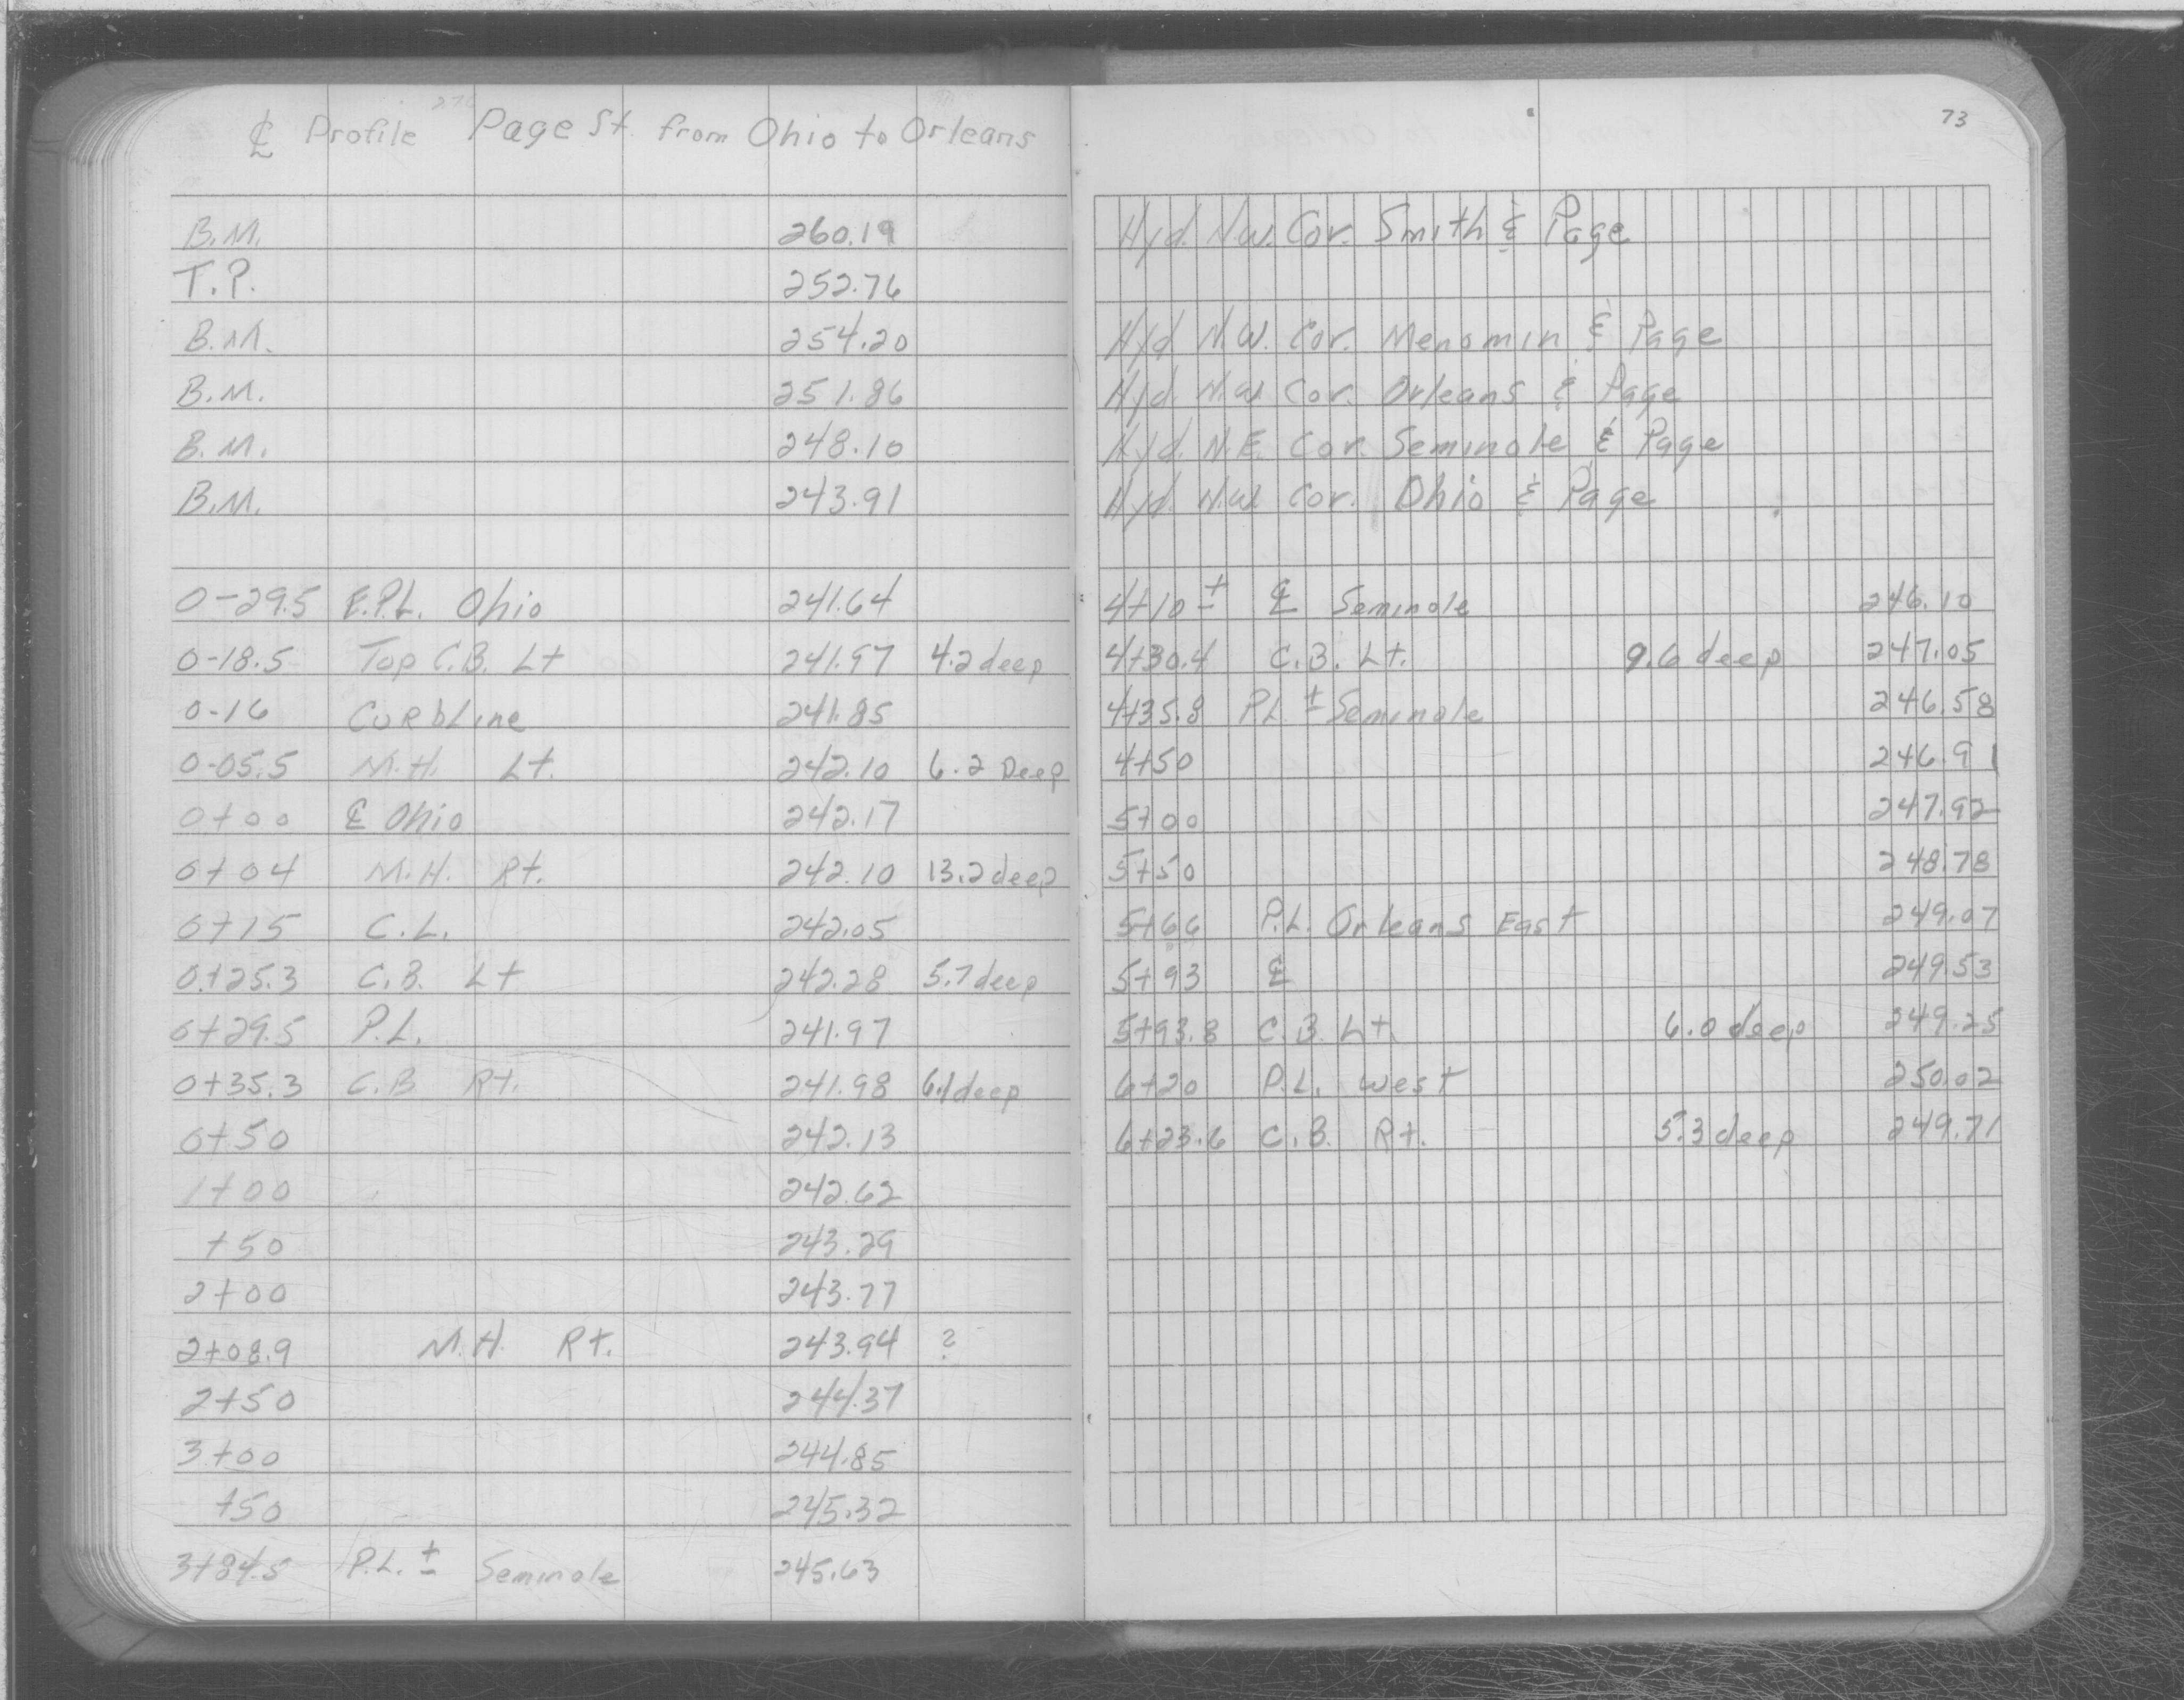 ℄ Profile Page St. from Ohio to Orleans
B.M. 260.19
T.P. 252.76
B.M. 254.20
B.M. 251.86
B.M. 248.10
B.M. 243.91
0-29.5 E.P.L. Ohio 241.64
0-18.5 Top C.B. Lt 241.97 4.2 deep
0-16 Curb Line 241.85
0-05.5 M.H. Lt. 242.10 6.2 Deep
0+00 ℄ Ohio 242.17
0+04 M.H. Rt. 242.10 13.2 deep
0+15 C.L. 242.05
0+25.3 C.B. Lt 242.28 5.7 deep
0+29.5 P.L. 241.97
0+35.3 C.B. Rt. 241.98 6.1 deep
0+50 242.13
1+00 242.62
+50 243.29
2+00 243.77
2+08.9 M.H. Rt. 243.94 ?
2+50 244.37
3+00 244.85
+50 245.32
3+84.5 P.L. ± Seminole 245.63
73
Hyd. N.W. Cor. Smith & Page
Hyd N.W. Cor. Menomin & Page
Hyd. N.W. Cor. Orleans & Page
Hyd. N.E. Cor. Seminole & Page
Hyd. N.W. Cor. Ohio & Page
4+10 ± ℄ Seminole 246.10
4+30.4 C.B. Lt. 9.6 deep 247.05
4+35.8 P.L. ± Seminole 246.58
4+50 246.91
5+00 247.92
5+50 248.78
5+66 P.L. Orleans East 249.07
5+93 ℄ 249.53
5+93.8 C.B. Lt. 6.0 deep 249.25
6+20 P.L. West 250.02
6+23.6 C.B. Rt. 5.3 deep 249.71